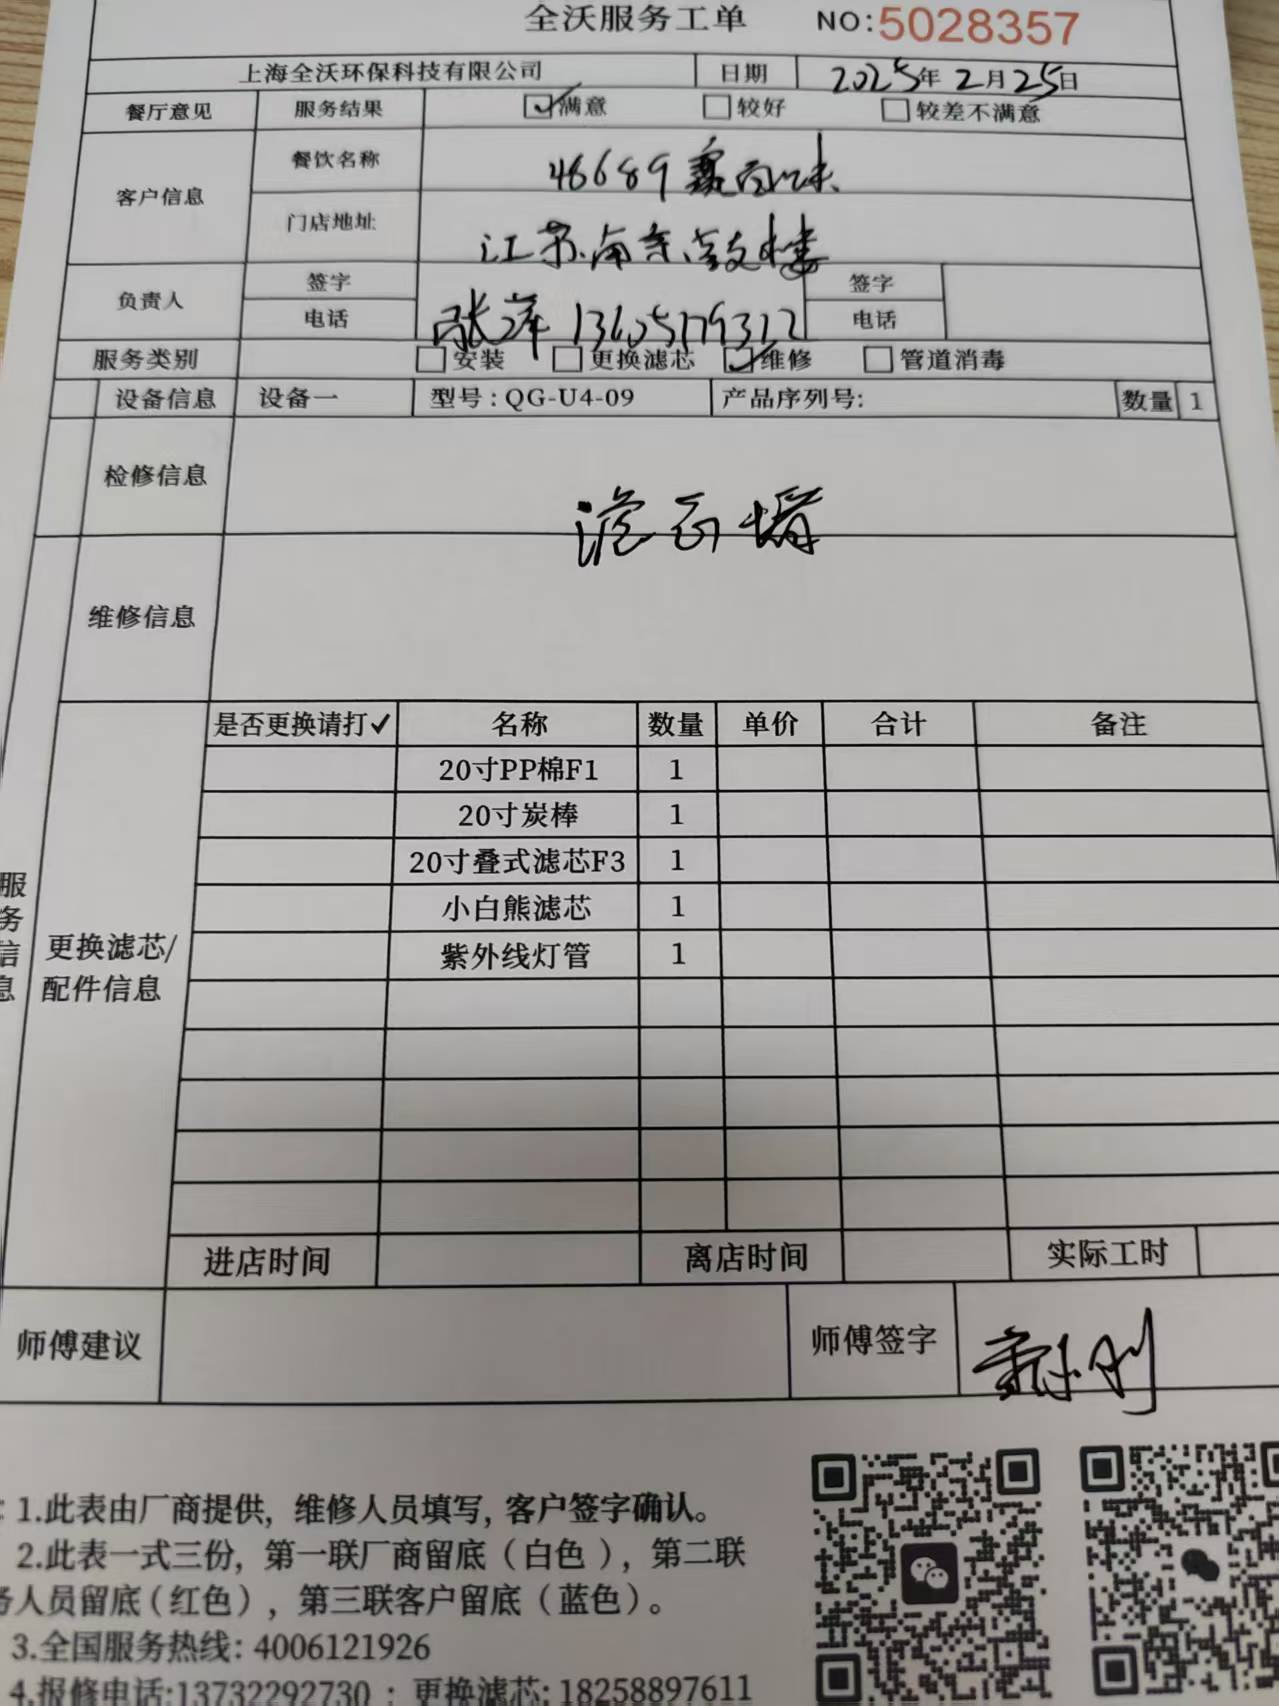 全沃服务工单 NO:5028357
上海全沃环保科技有限公司 日期 2025年2月25日
餐厅意见 服务结果 ☑满意 □较好 □较差不满意
客户信息 餐饮名称 46689
门店地址 江苏南京鼓楼
负责人 签字 签字
电话 张萍 13605179312 电话
服务类别 □安装 □更换滤芯 ☑维修 □管道消毒
设备信息 设备一 型号:QG-U4-09 产品序列号: 数量 1
检修信息
维修信息
是否更换请打✓ 名称 数量 单价 合计 备注
20寸PP棉F1 1
20寸炭棒 1
20寸叠式滤芯F3 1
小白熊滤芯 1
紫外线灯管 1
服务信息
更换滤芯/
配件信息
进店时间 离店时间 实际工时
师傅建议 师傅签字
1.此表由厂商提供, 维修人员填写, 客户签字确认。
2.此表一式三份, 第一联厂商留底(白色), 第二联
务人员留底(红色), 第三联客户留底(蓝色)。
3.全国服务热线: 4006121926
4.报修电话:13732292730 ; 更换滤芯: 18258897611